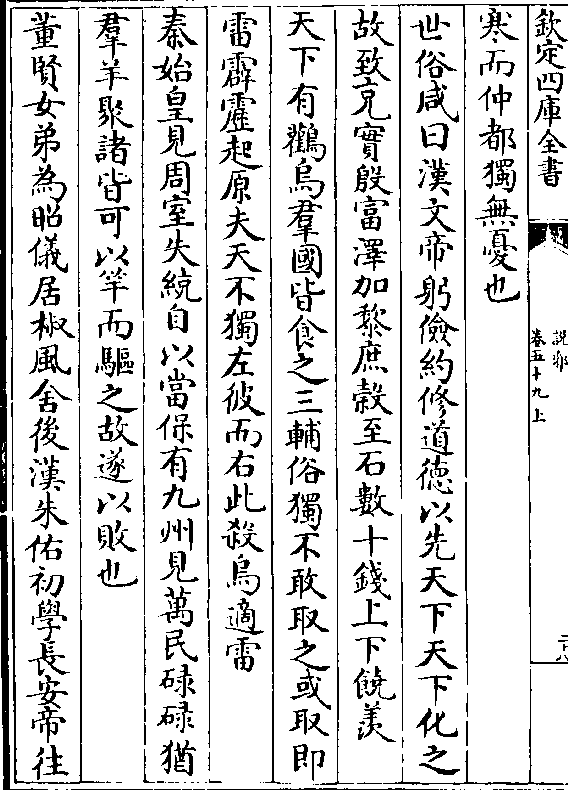 欽定四庫全書
說郛
卷五十九上
寒而仲都獨無憂也
世俗咸曰漢文帝躬儉約修道德以先天下天下化之
故致充實殷富澤加黎庶穀至石數十錢上下饒羨
天下有鸛鳥羣國皆食之三輔俗獨不敢取之或取即
雷霹靂起原夫天不獨左彼而右此殺鳥適雷
秦始皇見周室失統自以當保有九州見萬民碌碌猶
羣羊聚諸皆可以竿而驅之故遂以敗也
董賢女弟為昭儀居椒風舍後漢朱佑初學長安帝往